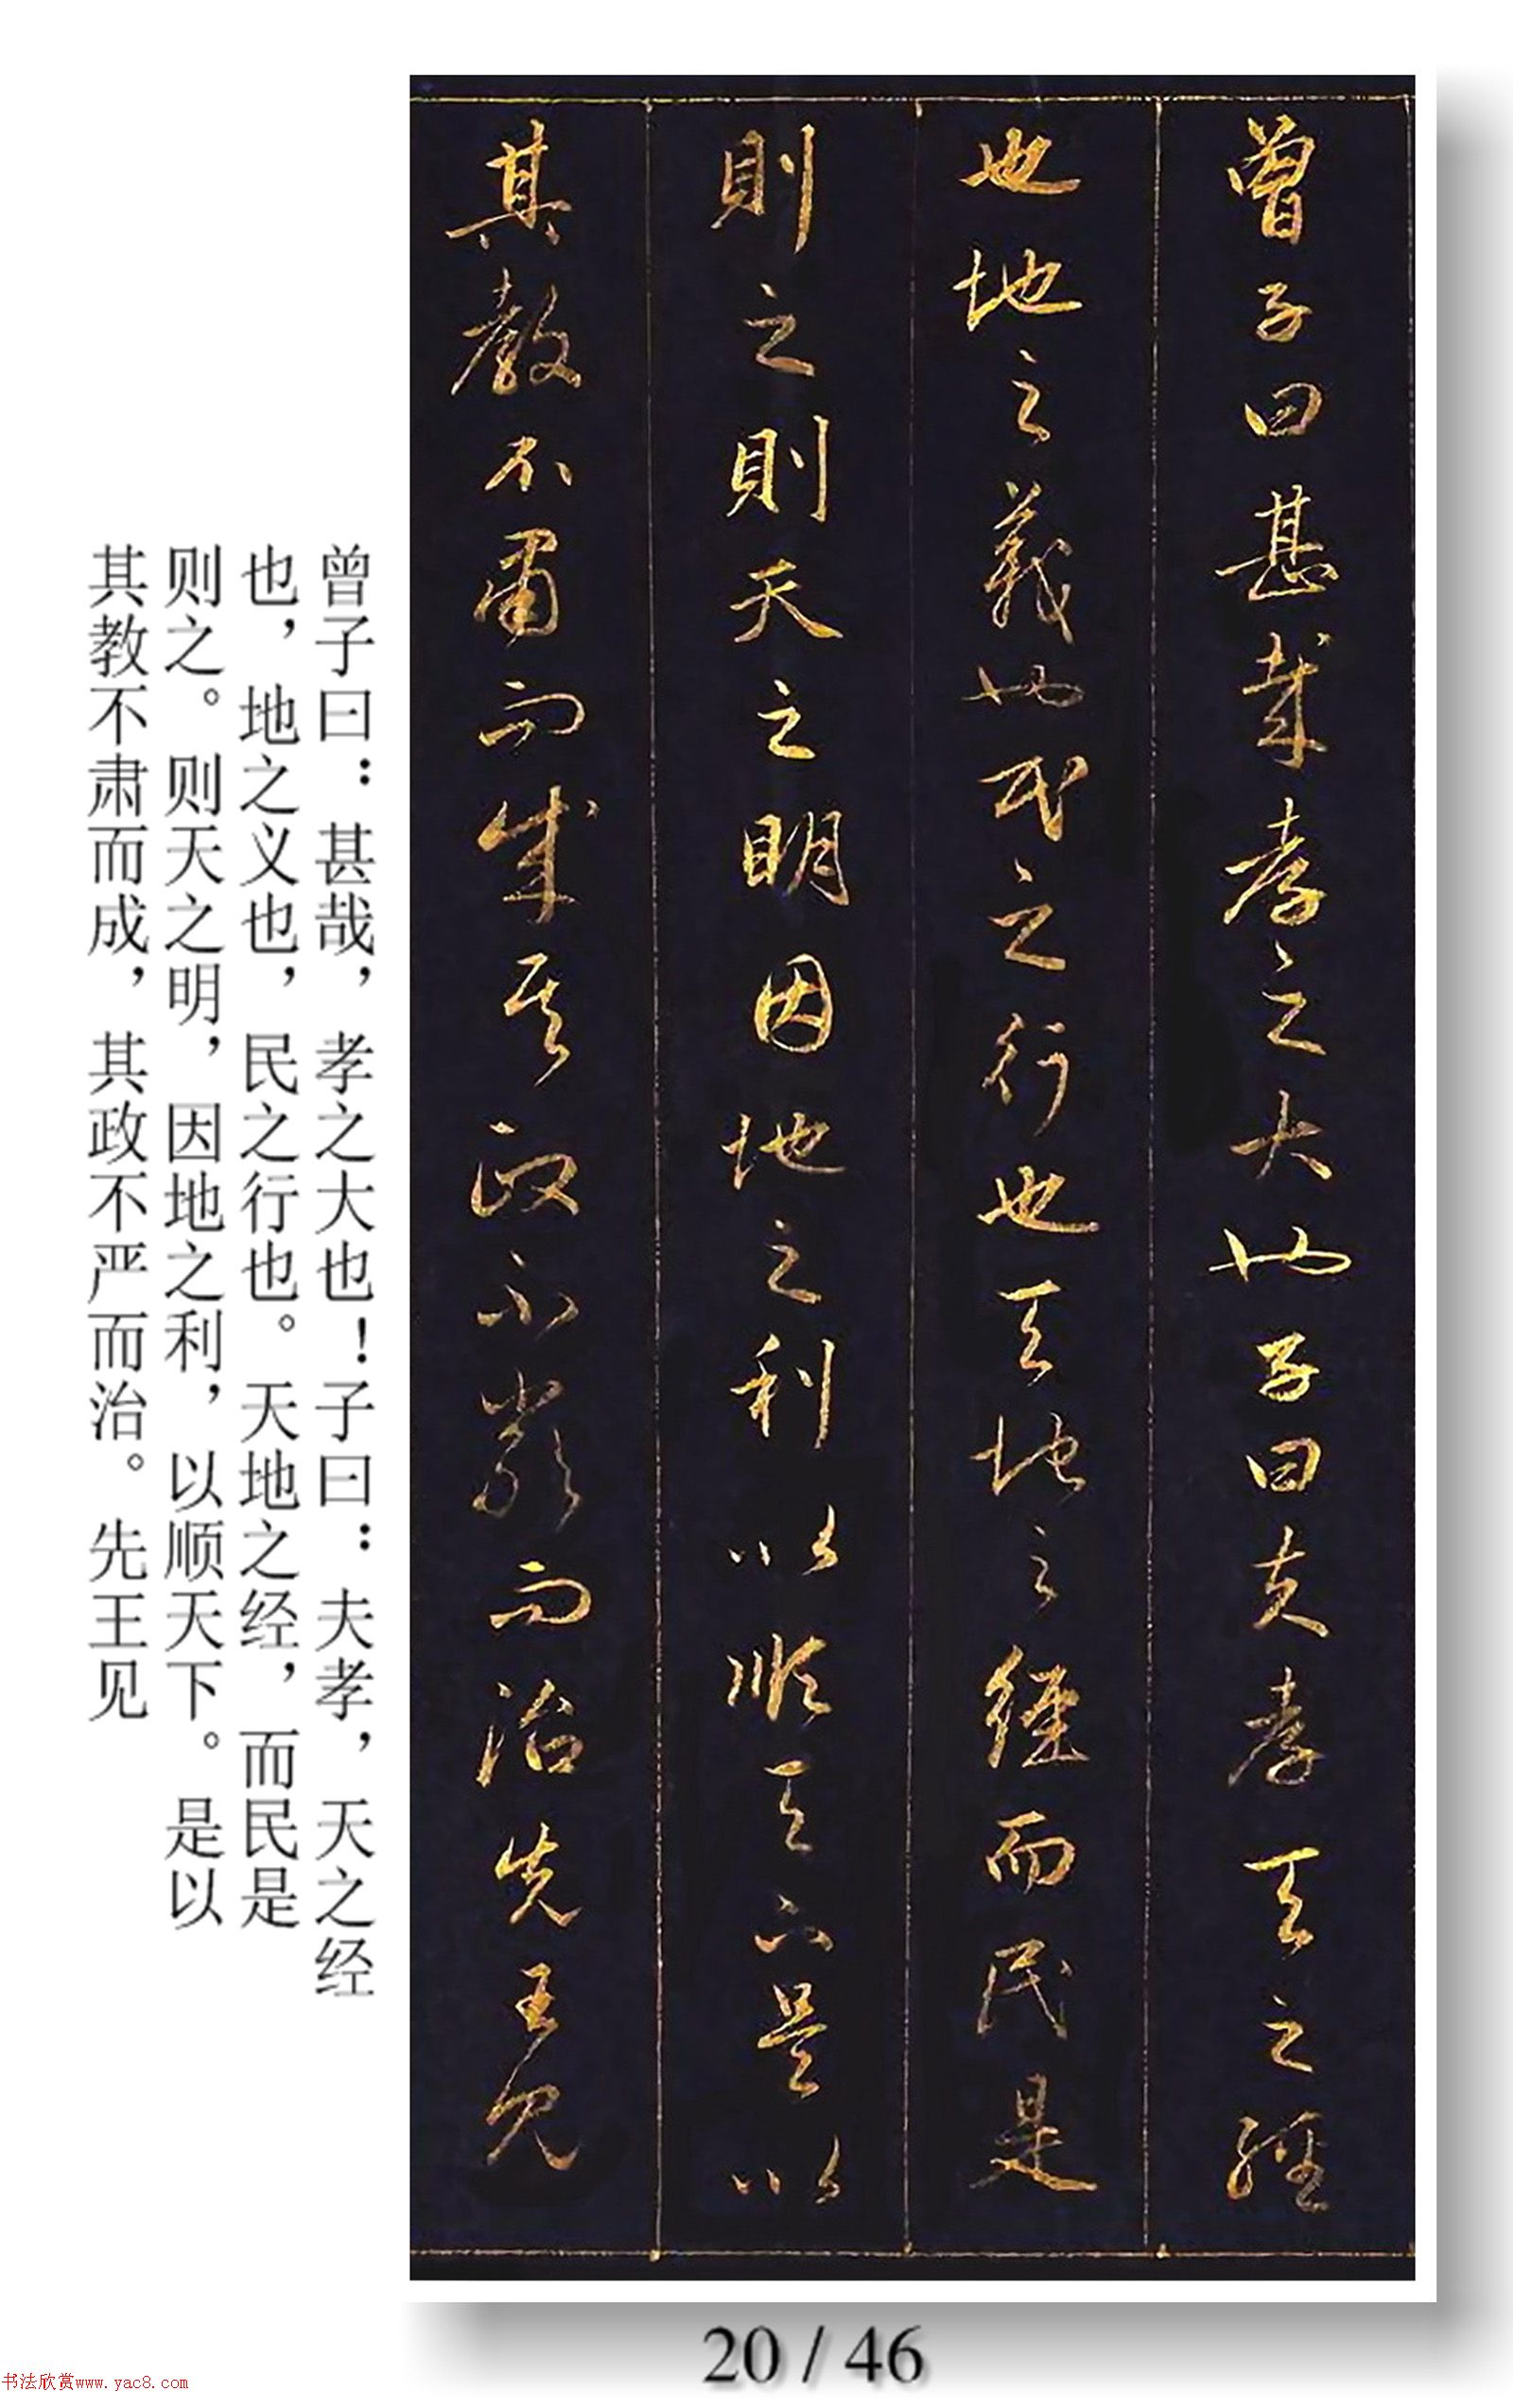 曾子曰甚哉孝之大也子曰夫孝天之經
也地之義也民之行也天地之經而民是
則之則天之明因地之利以順天下是以
其教不肅而成其政不嚴而治先王見
曾子曰：甚哉，孝之大也！子曰：夫孝，天之经
也，地之义也，民之行也。天地之经，而民是
则之。则天之明，因地之利，以顺天下。是以
其教不肃而成，其政不严而治。先王见
20 / 46
书法欣赏www.yac8.com